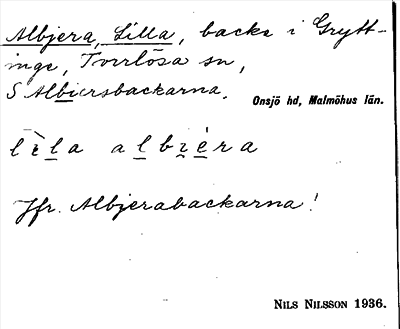 Albjera, Lilla, backe i Grytt-
inge, Torrlösa sn,
S Albjersbackarna.
Onsjö hd, Malmöhus län.
lìl̲a al̲bi̲é̲ra
Jfr. Albjerabackarna!
NILS NILSSON 1936.